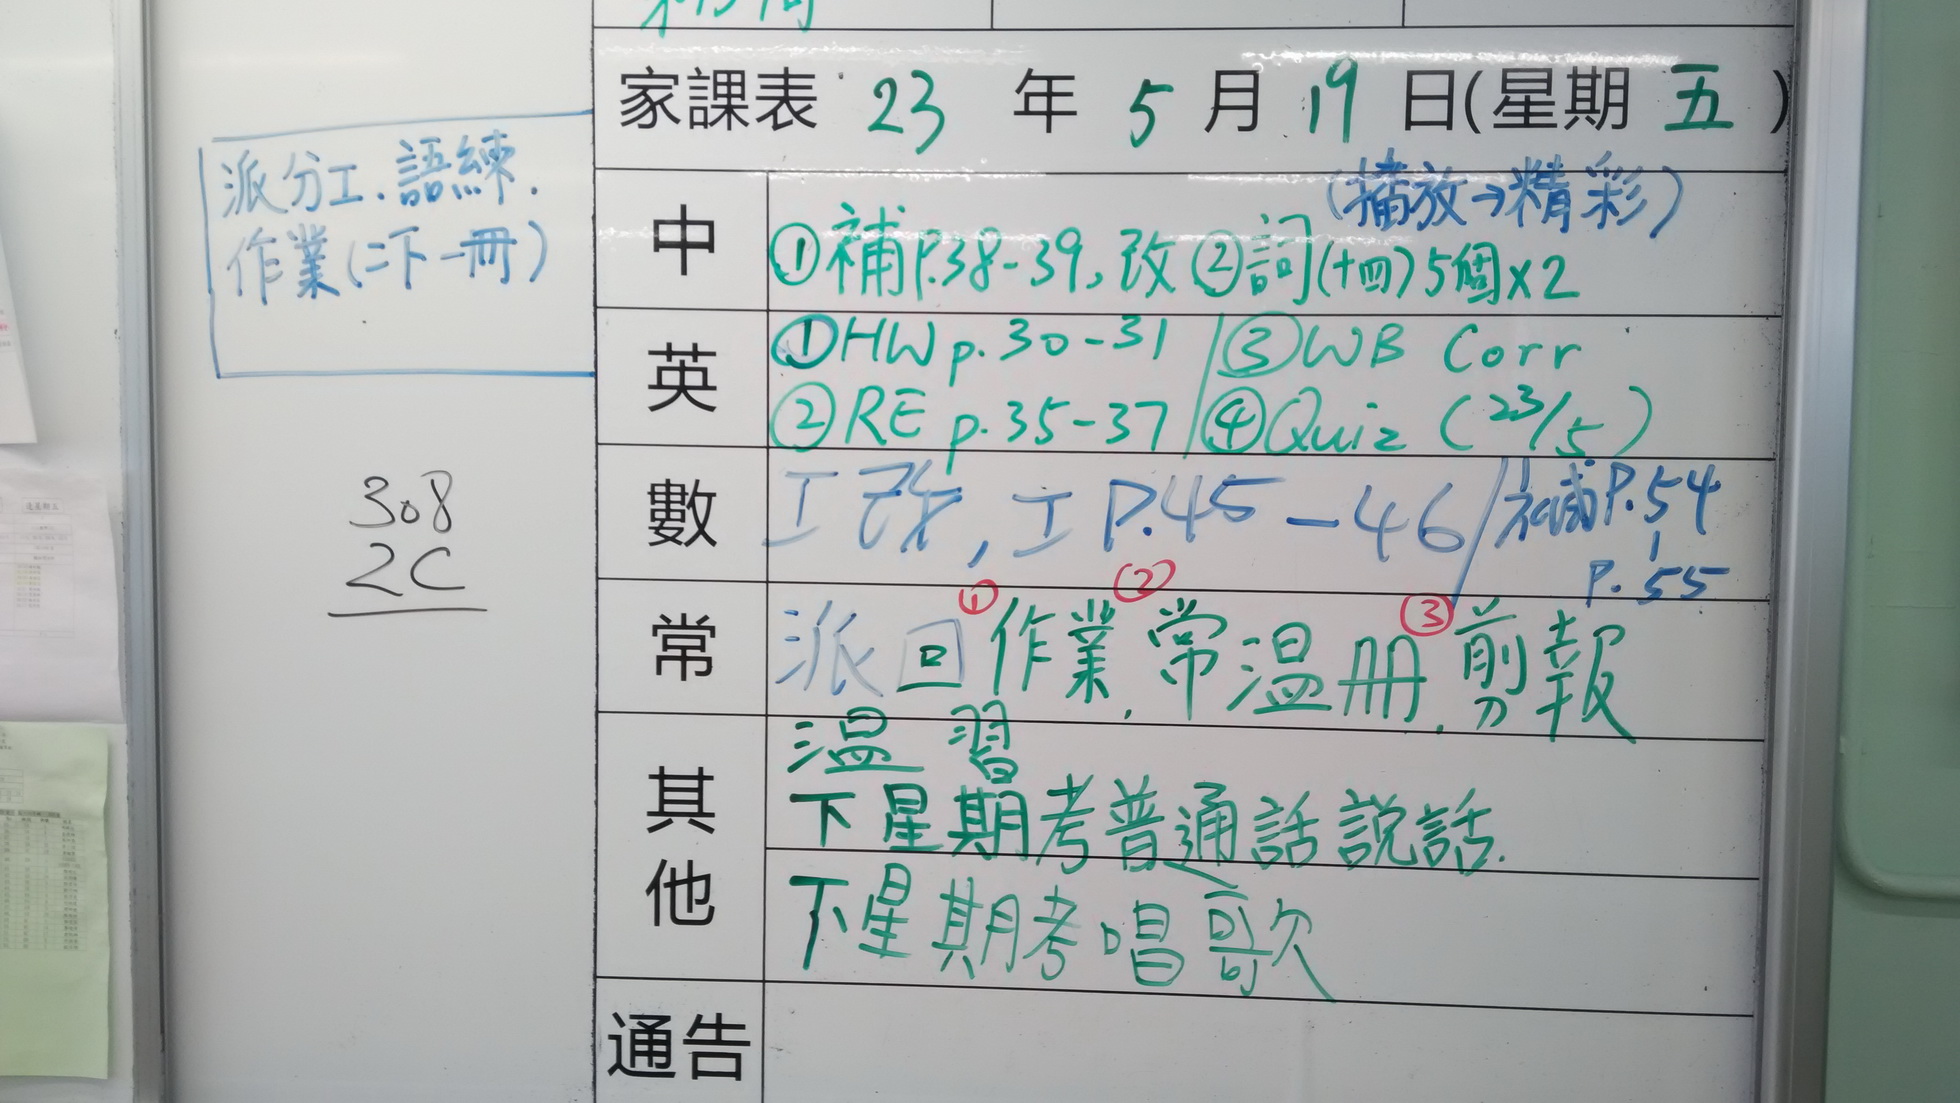 家課表 23 年 5 月 19 日(星期 五 )
派分工.語練.
作業(二下一冊)
308
2C
中
(播放→精彩)
①補P.38-39,改 ②詞(十四)5個x2
英
①HW p.30-31 / ③WB Corr
②RE p.35-37 / ④Quiz (23/5)
數
工改,工P.45-46 / 補P.54
|
P.55
常
① ② ③
派回作業,常溫冊,剪報
其他
溫習
下星期考普通話說話.
下星期考唱歌
通告